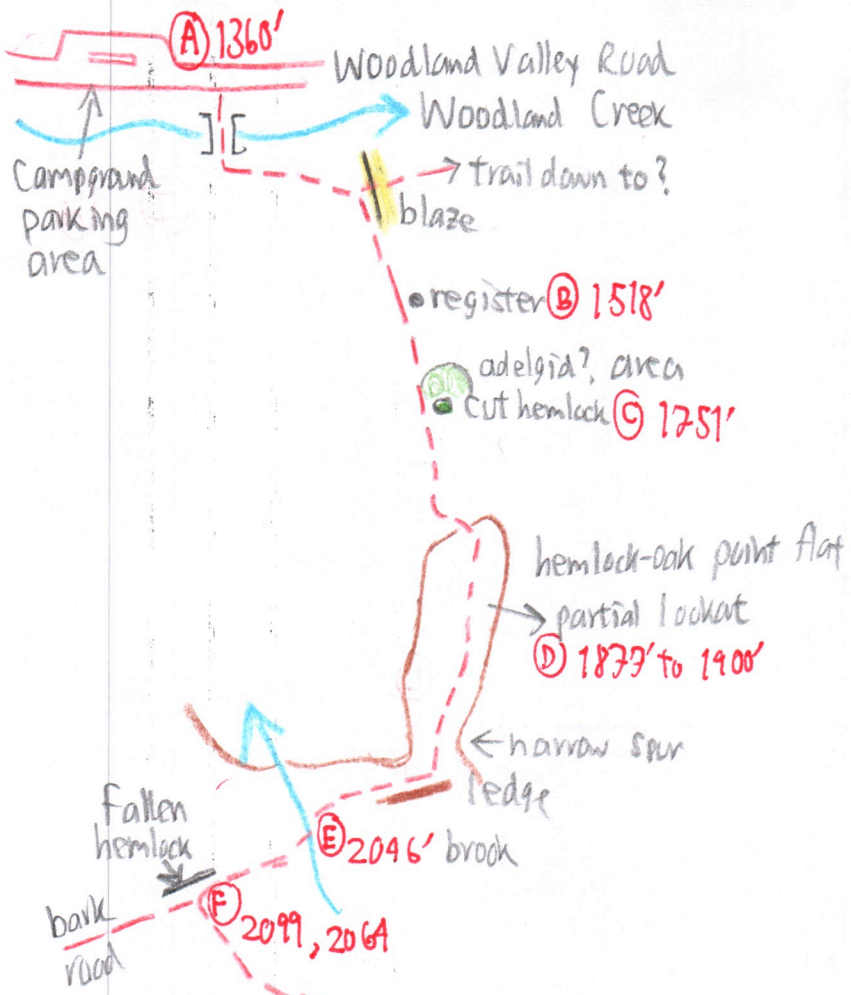 A 1360'
Woodland Valley Road
Woodland Creek
Campground
parking
area
trail down to?
blaze
register B 1518'
adelgid? area
cut hemlock C 1751'
hemlock-oak point flat
partial lookat
D 1877' to 1900'
narrow spur
ledge
Fallen
hemlock
E 2046' brook
F
2099, 2064
bark
road